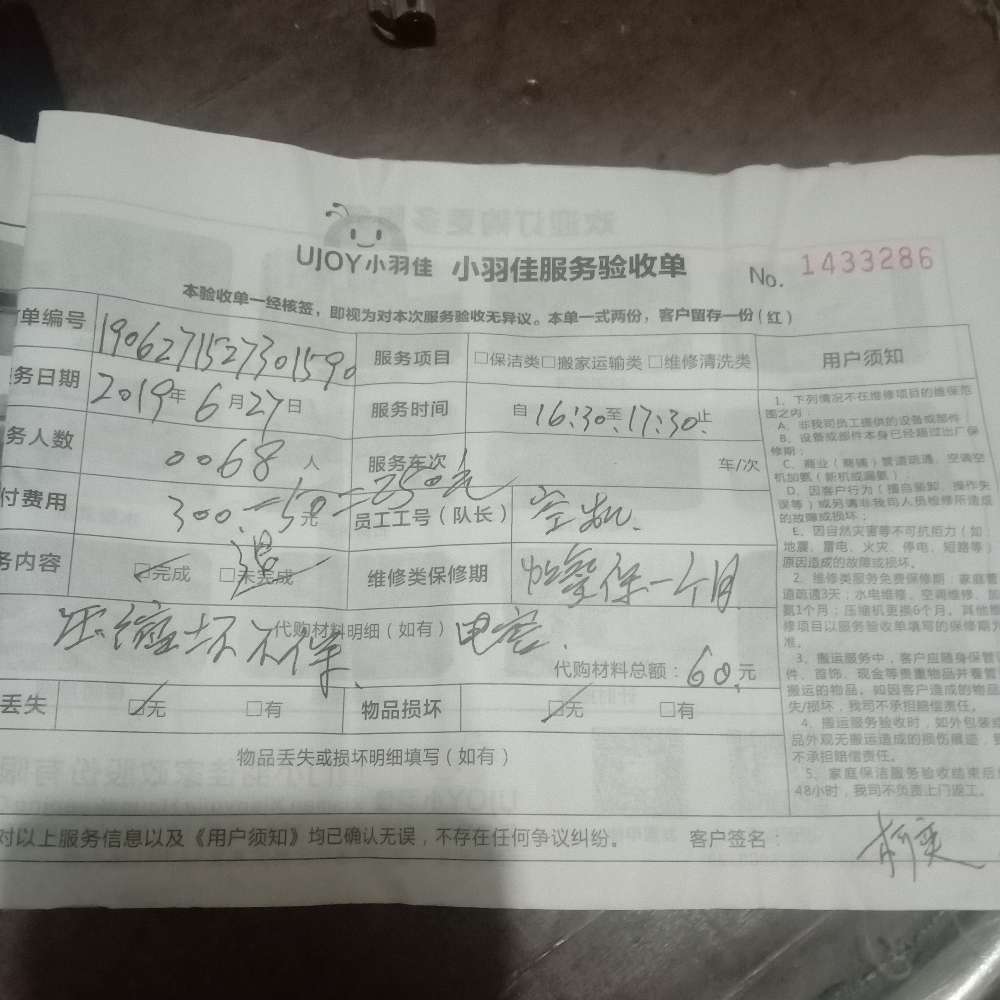 UJOY小羽佳 小羽佳服务验收单 No. 1433286
本验收单一经核签，即视为对本次服务验收无异议。本单一式两份，客户留存一份（红）
单编号 1906271527301590 服务项目 □保洁类□搬家运输类 □维修清洗类 用户须知
务日期 2019年6月27日 服务时间 自16:30至17:30止
务人数 0068人 服务车次 车/次
付费用 300.-50=250元 员工工号（队长）
退
务内容 ☑完成 □未完成 维修类保修期 保一个月
压缩坏不保 代购材料明细（如有） 电容
代购材料总额：60元
丢失 ☑无 □有 物品损坏 ☑无 □有
物品丢失或损坏明细填写（如有）
对以上服务信息以及《用户须知》均已确认无误，不存在任何争议纠纷。 客户签名：
1、下列情况不在维修项目的维保范
围之内：
A、非我司员工提供的设备或部件；
B、设备或部件本身已经超过出厂保
修期；
C、商业（商铺）管道疏通、空调空
机加氨（新机或漏氨）
D、因客户行为（擅自装卸、操作失
误等）或另请非我司人员检修所造成
的故障或损坏；
E、因自然灾害等不可抗拒力（如
地震、雷电、火灾、停电、短路等）
原因造成的故障或损坏。
2、维修类服务免费保修期：家庭管
道疏通3天；水电维修、空调维修、加
氨1个月；压缩机更换6个月。其他维
修项目以服务验收单填写的保修期为
准。
3、搬运服务中，客户应随身保管
件、首饰、现金等贵重物品并看管
搬运的物品。如因客户造成的物品
失/损坏，我司不承担赔偿责任。
4、搬运服务验收时，如外包装
品外观无搬运造成的损伤痕迹，
不承担赔偿责任。
5、家庭保洁服务验收结束后
48小时，我司不负责上门返工。